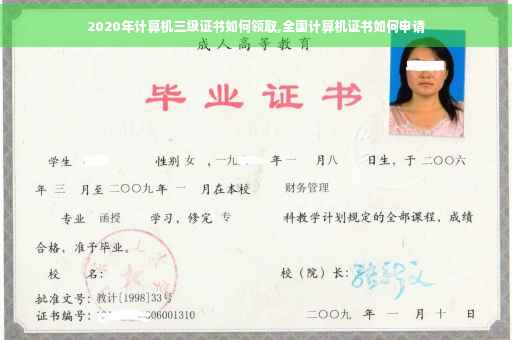 2020年计算机三级证书如何领取,全国计算机证书如何申请
成人高等教育
毕业证书
学生 性别 女 ,一九 年 一 月八 日生，于 二〇〇六
年 三 月至 二〇〇九年 一 月在本校 财务管理
专业 函授 学习，修完 专 科教学计划规定的全部课程，成绩
合格，准予毕业。
校 名： 校（院）长：
批准文号：教计[1998]33号
证书编号： 06001310 二〇〇九 年 一 月 十 日